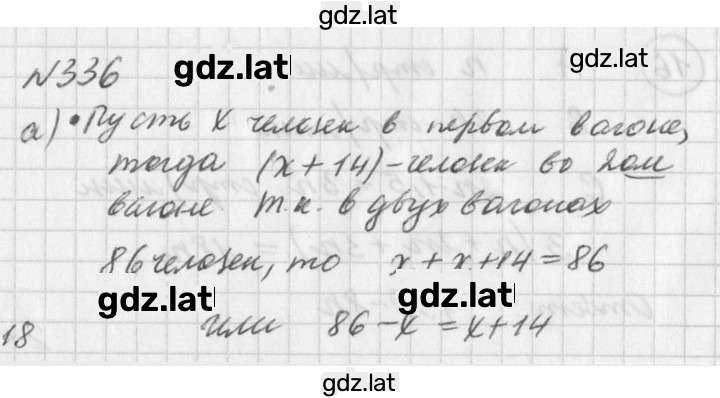 gdz.latl
N336 gdz.latl gdz.lat
а) • Пусть х человек в первом вагоне,
тогда (х + 14) - человек во 2ом
вагоне. т.к. в двух вагонах
86 человек, то х + х + 14 = 86
gdz.latl gdz.latl
или 86 - х = х + 14
18
gdz.lat